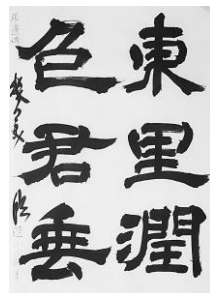 東里潤
色君垂